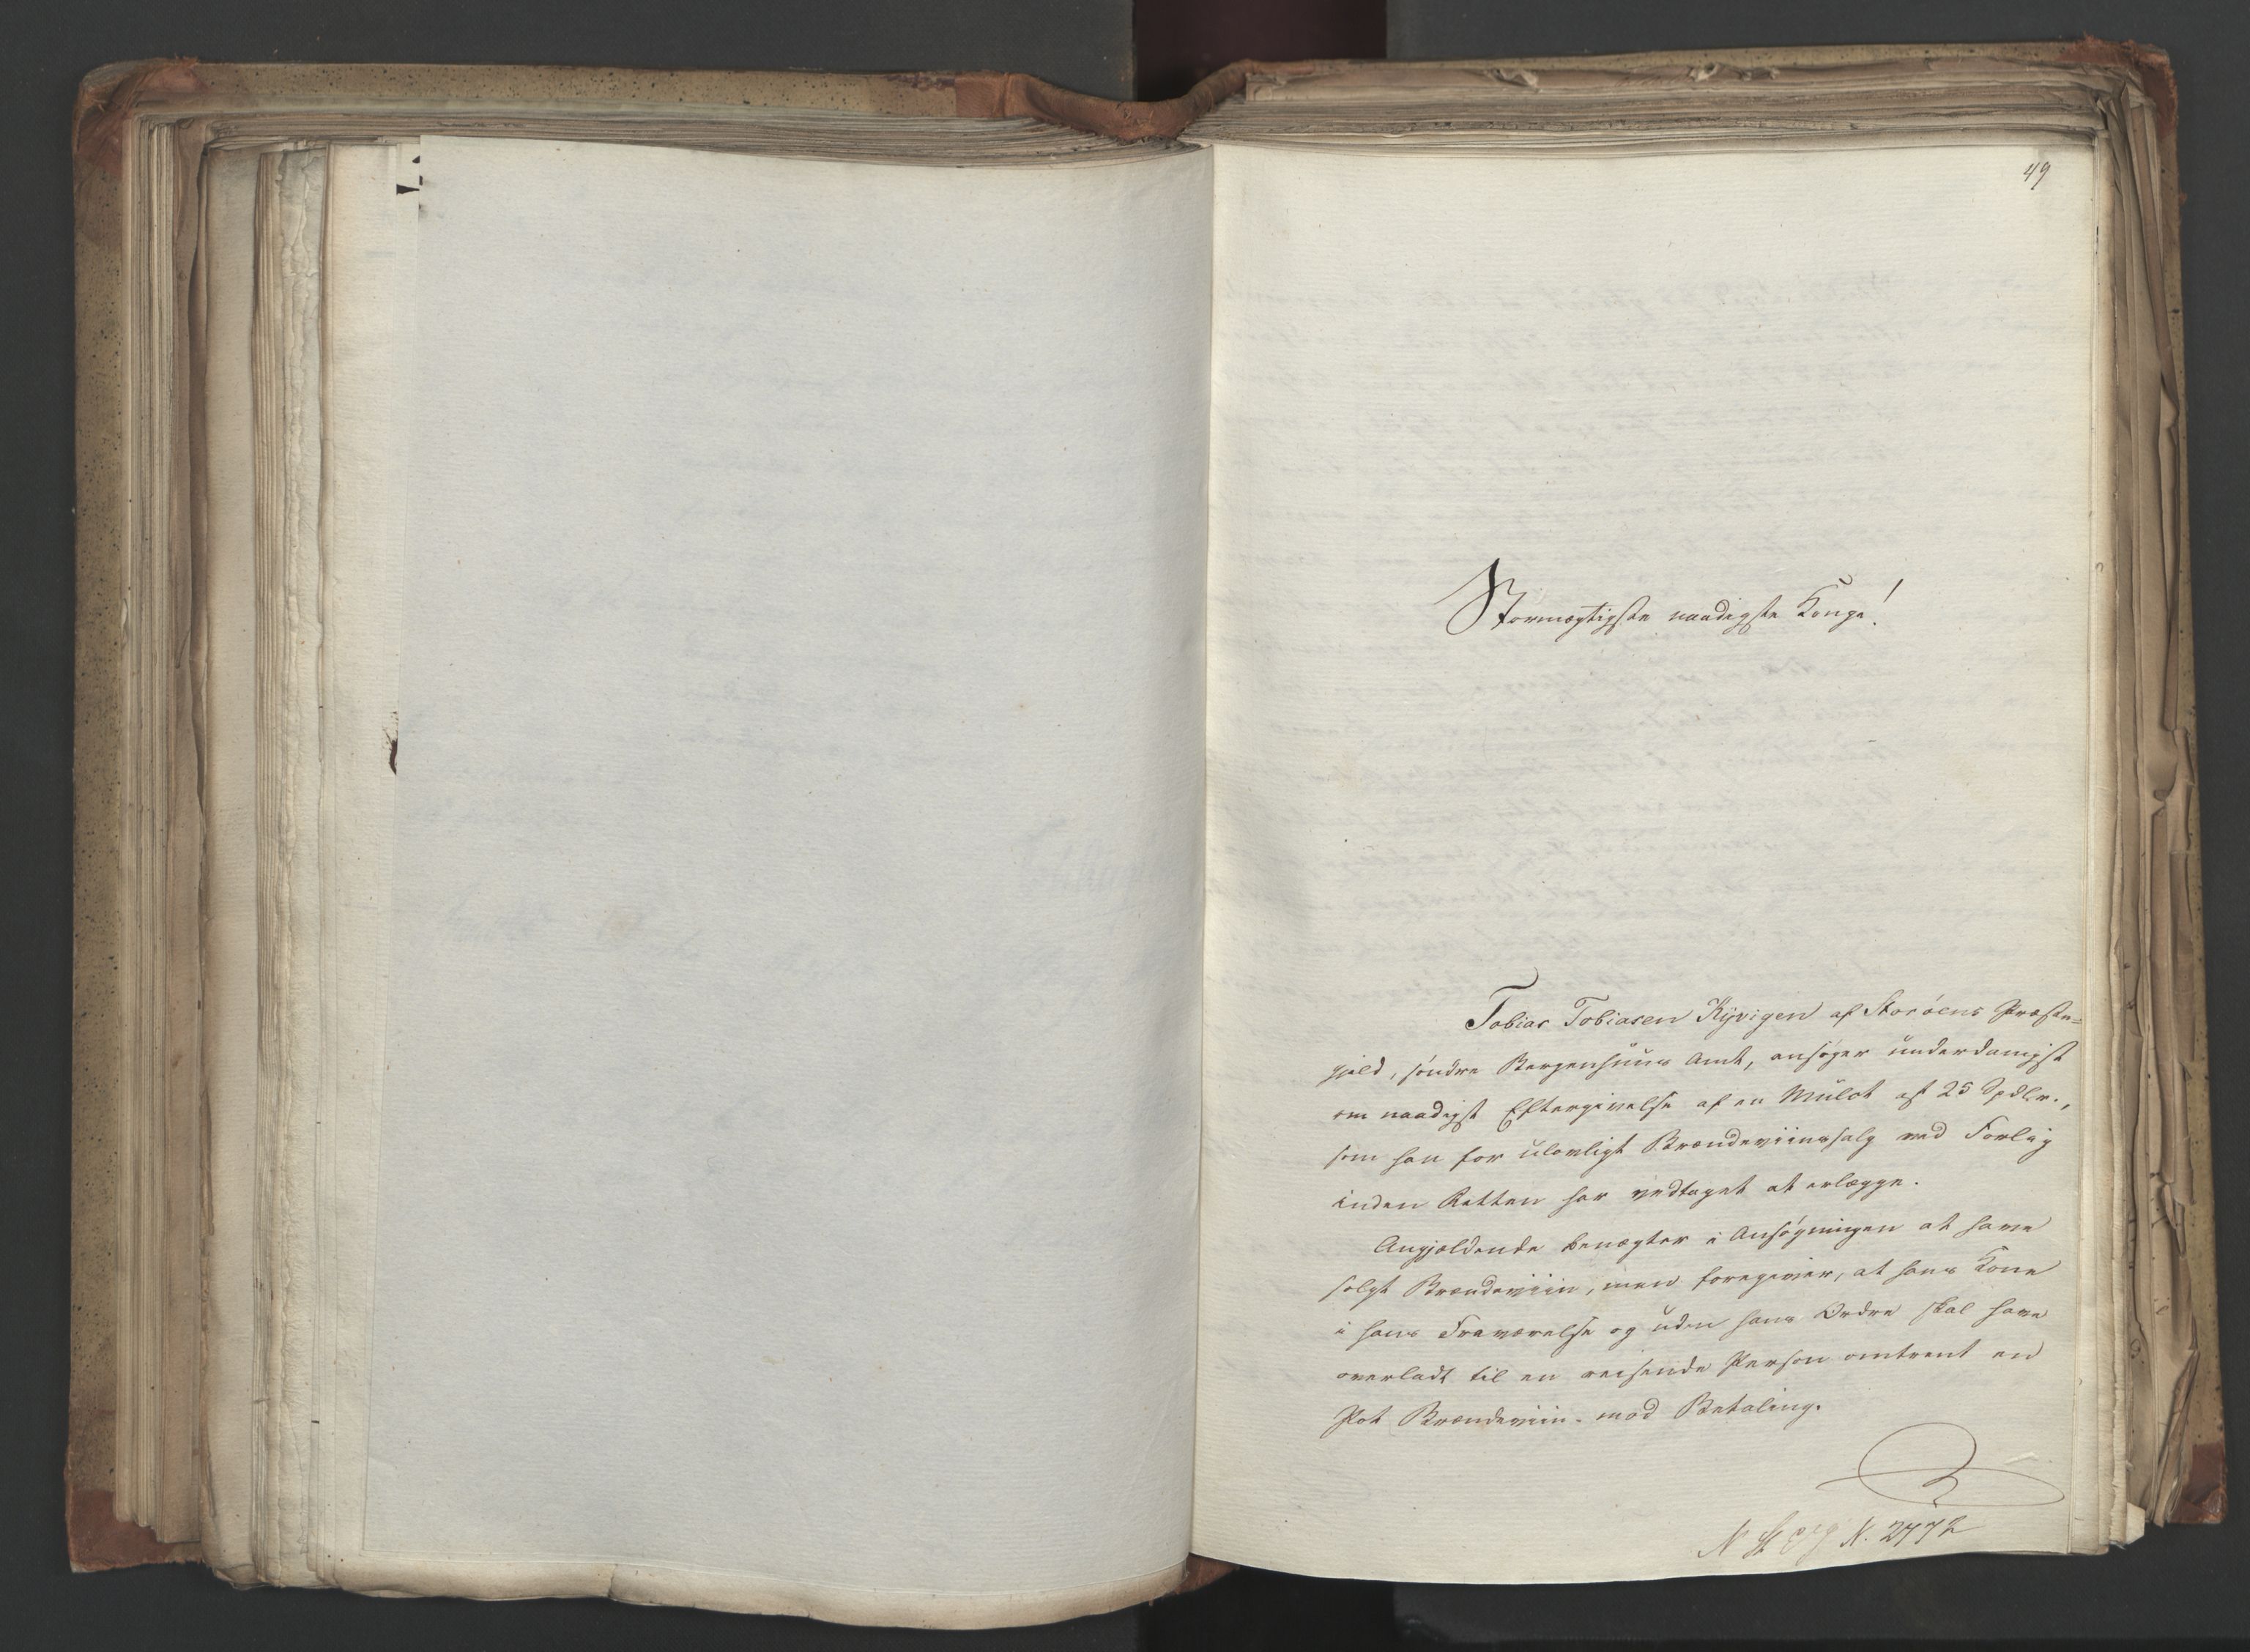 49
Stormægtigste naadigste Konge!
Tobias Tobiasen Kyvigen af Storøens Præste-
gjeld, søndre Bergenhuus Amt, ansøger underdanigst
om naadigst Eftergivelse af en Mulct af 25 Spdlr.,
som han for ulovligt Brændeviinssalg ved Forlig
inden Retten har vedtaget at erlægge.
Angjældende benægter i Ansøgningen at have
solgt Brændeviin, men foregiver, at hans Kone
i hans Fraværelse og uden hans Ordre skal have
overladt til en reisende Person omtrent en
Pot Brændeviin mod Betaling.
N. 2772